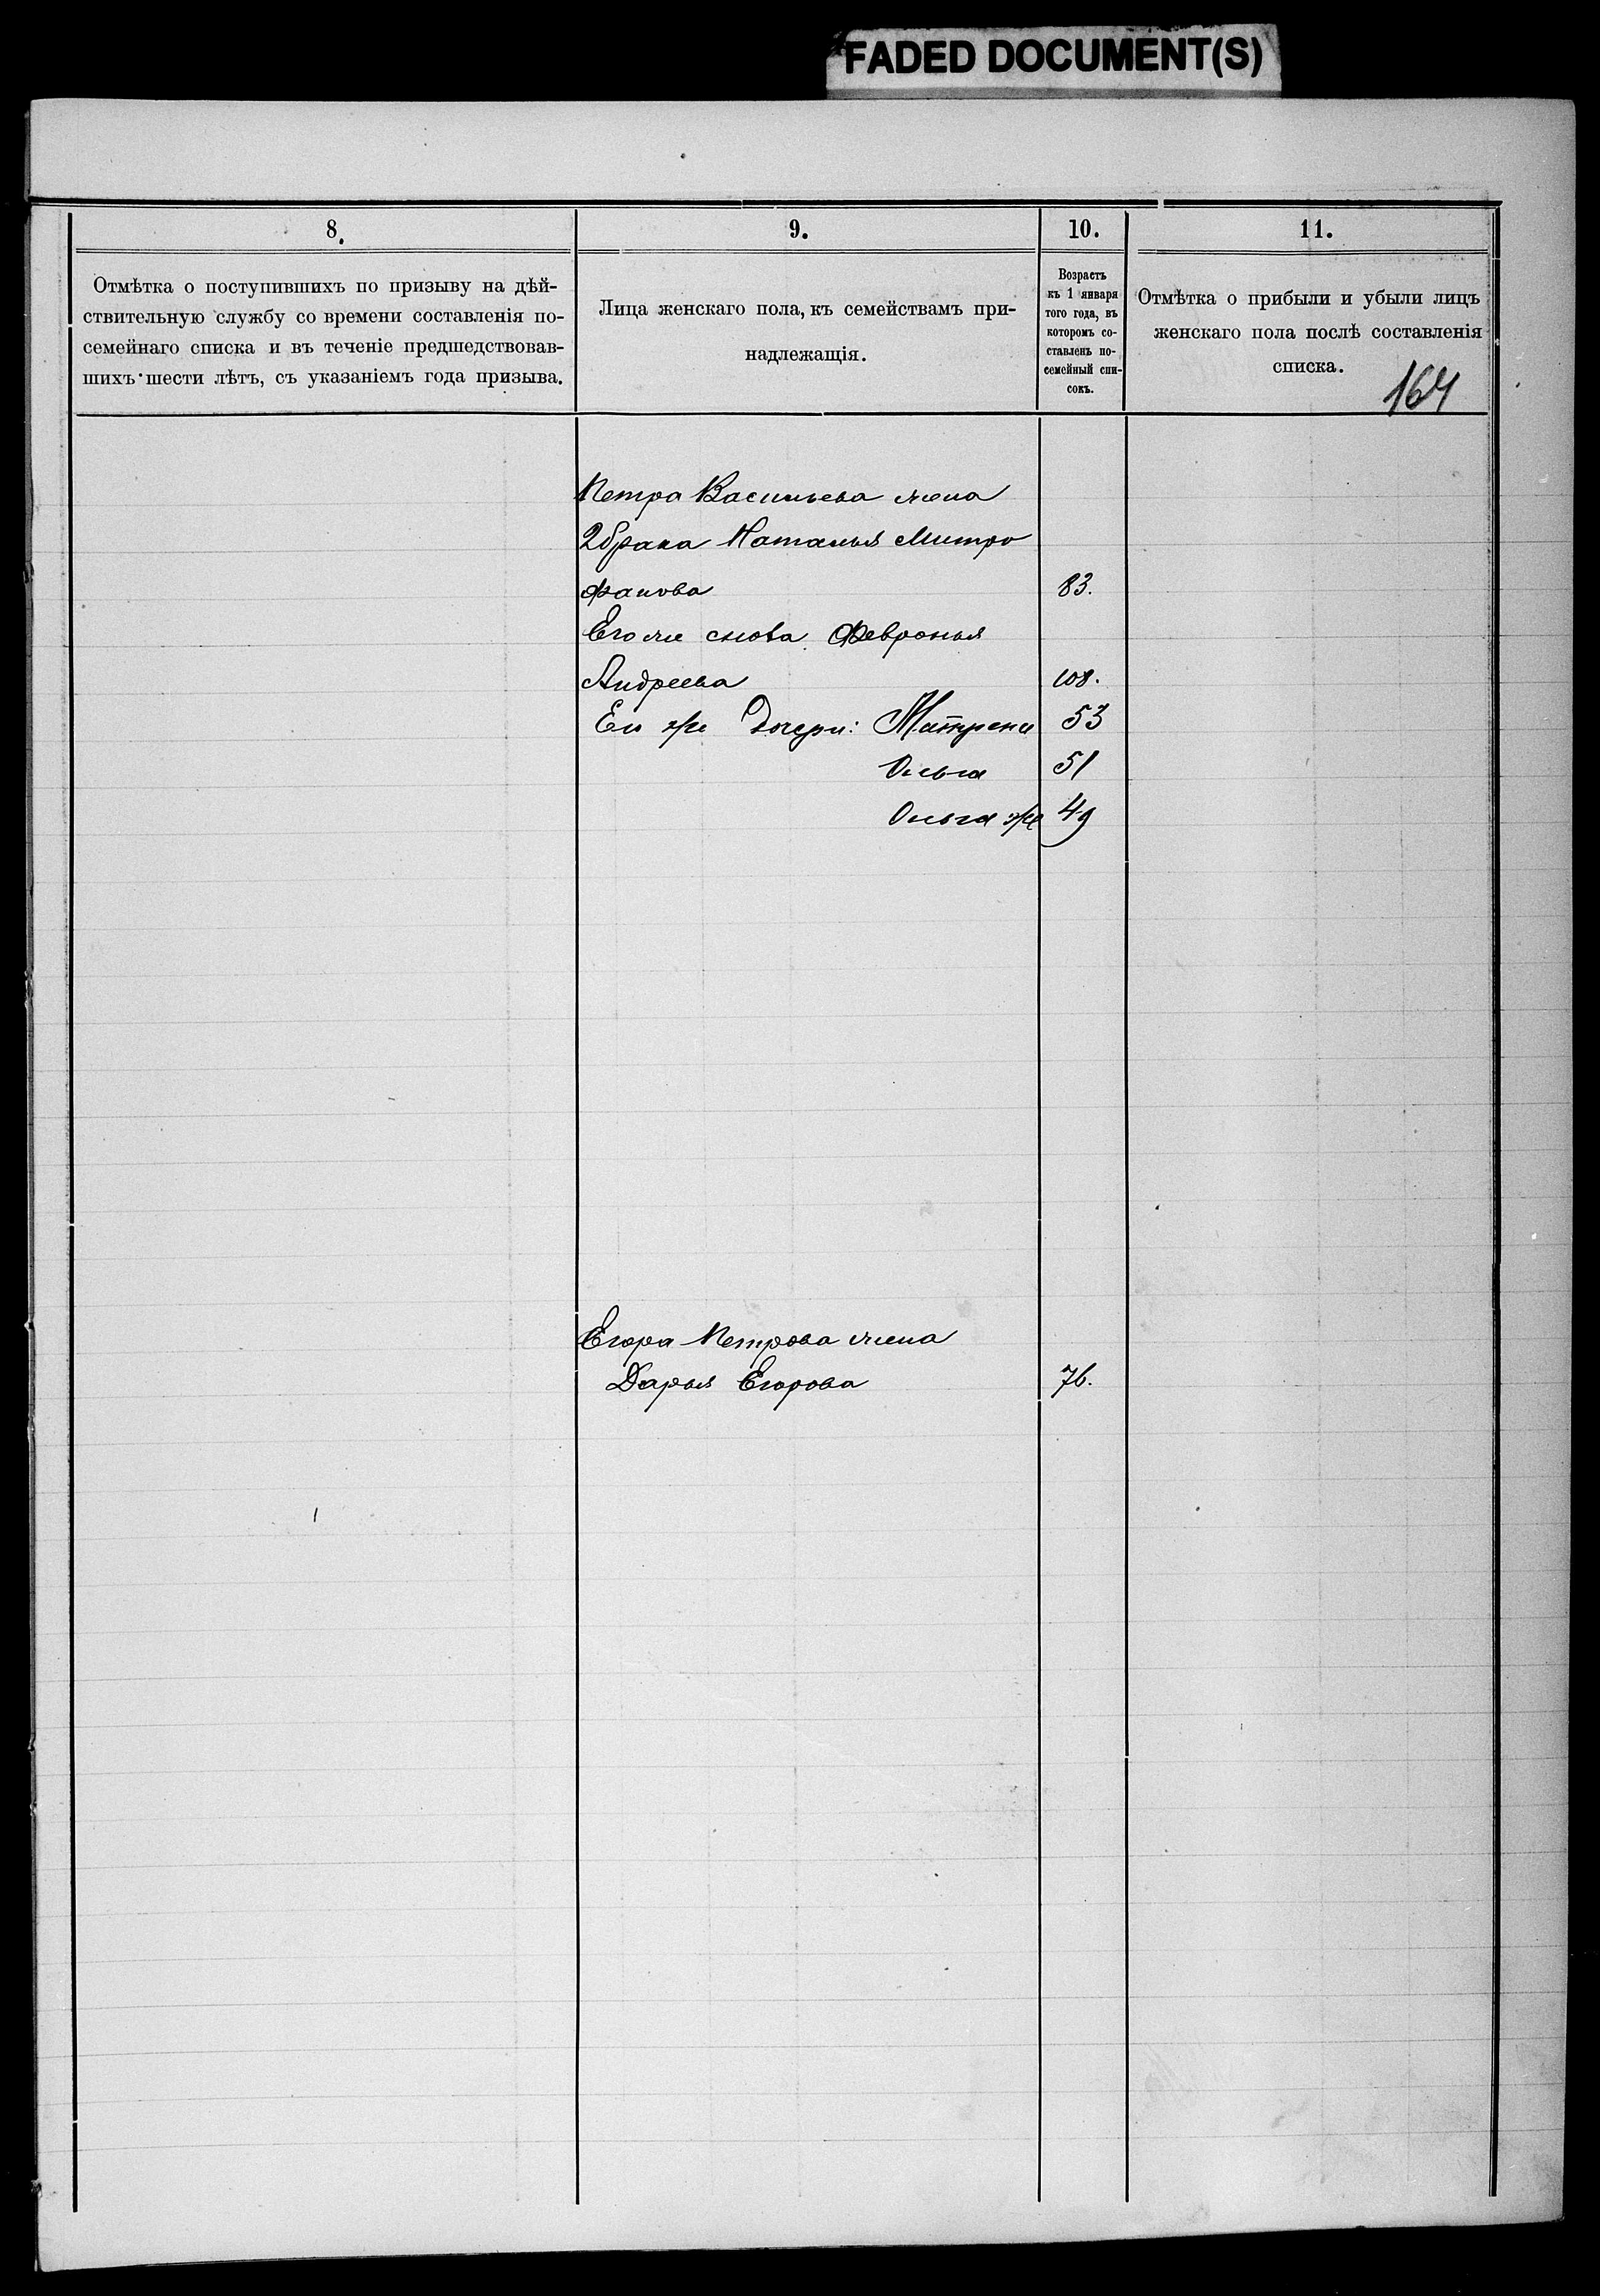 FADED DOCUMENT(S)
8.
Отмѣтка о поступившихъ по призыву на дѣй-
ствительную службу со времени составленія по-
семейнаго списка и въ теченіе предшедствовав-
шихъ шести лѣтъ, съ указаніемъ года призыва.
9.
Лица женскаго пола, къ семействамъ при-
надлежащія.
10.
Возрастъ
къ 1 января
того года, въ
которомъ со-
ставленъ по-
семейный спи-
сокъ.
11.
Отмѣтка о прибыли и убыли лицъ
женскаго пола послѣ составленія
списка.
164
Петра Васильева жена
2 брака Наталья Митро
фанова 83.
Его же сноха Февронья
Андреева 108.
Его же Дочери: Матрена 53
Ольга 51
Ольга же 49
Егора Петрова жена
Дарья Егорова 76.